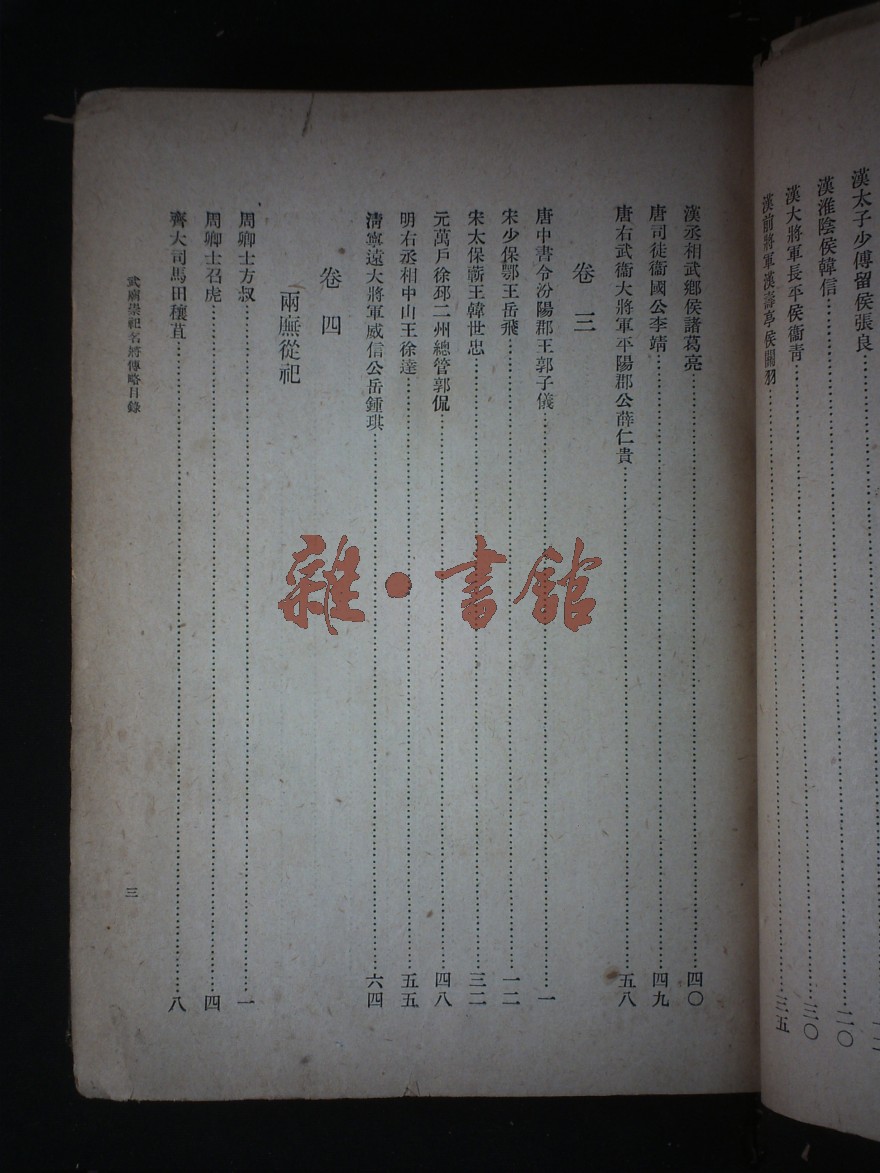 漢太子少傅留侯張良
漢淮陰侯韓信……二〇
漢大將軍長平侯衞青……三〇
漢前將軍漢壽亭侯關羽……三五
漢丞相武鄉侯諸葛亮……四〇
唐司徒衞國公李靖……四九
唐右武衞大將軍平陽郡公薛仁貴……五八
卷三
唐中書令汾陽郡王郭子儀……一
宋少保鄂王岳飛……一二
宋太保蘄王韓世忠……三二
元萬戶徐邳二州總管郭侃……四八
明右丞相中山王徐達……五五
清寧遠大將軍威信公岳鍾琪……六四
卷四
兩廡從祀
周卿士方叔……一
周卿士召虎……四
齊大司馬田穰苴……八
武廟崇祀名將傳略目錄
三
雜·書館